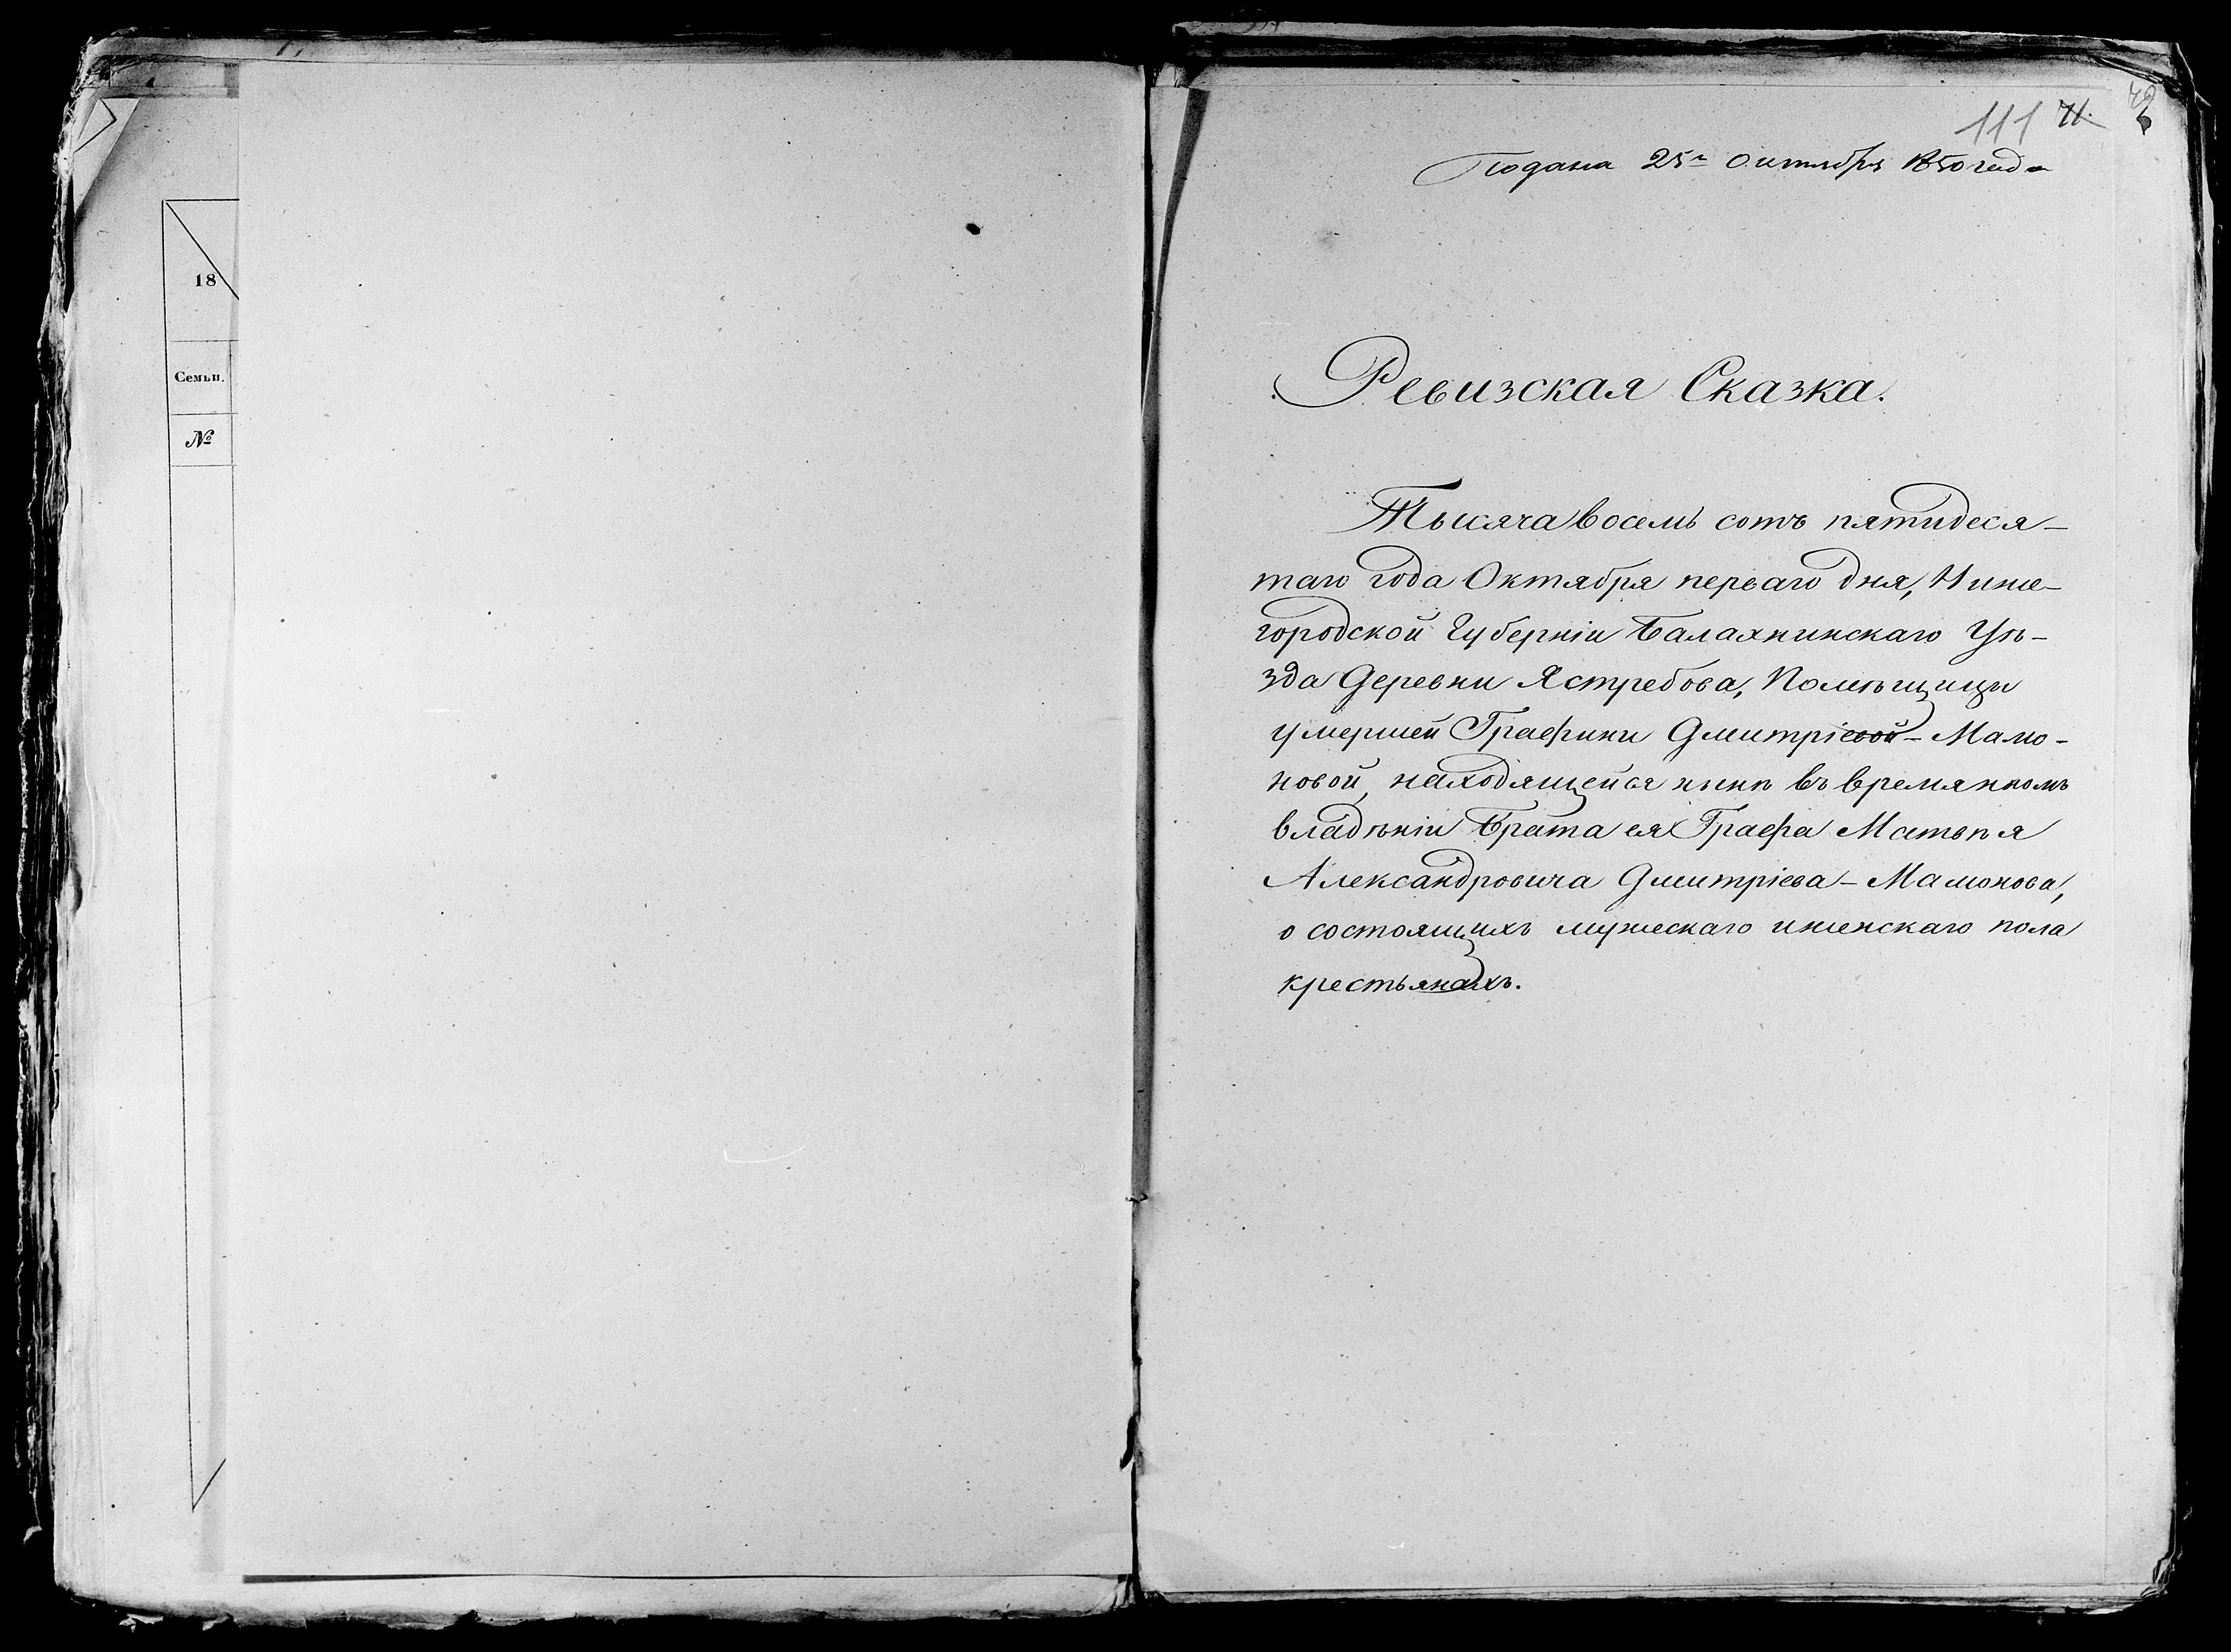 18
Семьи.
№
111 71.
Подана 25го октября 1850 года
Ревизская Сказка.
Тысяча восемь сотъ пятидеся-
таго года Октября перваго дня, Ниже-
городской Губерніи Балахнинскаго Уѣ-
зда Деревни Ястребова, Помѣщицы
умершей Графини Дмитріевой-Мамо-
новой, находящейся нынѣ въ времянномъ
владѣніи Брата ея Графа Матвѣя
Александровича Дмитріева-Мамонова,
о состоящихъ мужескаго и женскаго пола
крестьянахъ.